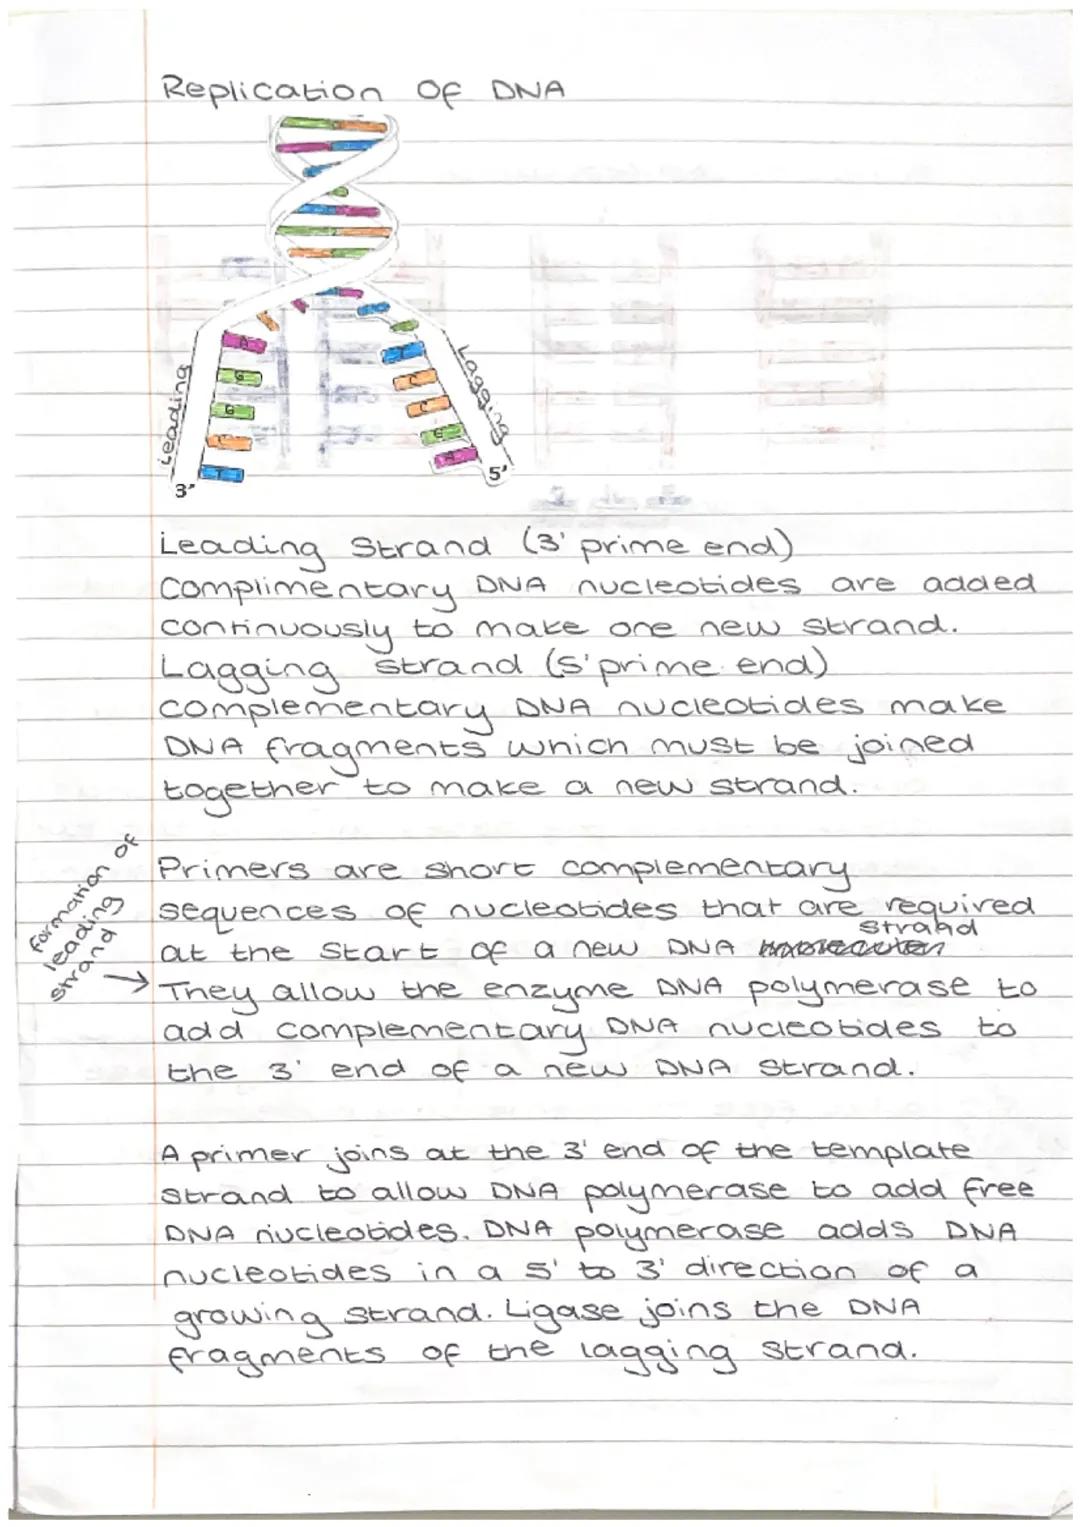 Replication of DNA
Leading
Lagging
A
G
G
C
T
T
C
C
G
A
3'
5'
Leading Strand (3' prime end)
Complimentary DNA nucleotides are added
continuously to make one new strand.
Lagging strand (5' prime end)
complementary DNA nucleotides make
DNA fragments which must be joined
together to make a new strand.
formation of
leading
strand
Primers are short complementary
sequences of nucleotides that are required
strand
at the start of a new DNA
They allow the enzyme DNA polymerase to
add complementary DNA nucleotides to
the 3' end of a new DNA strand.
A primer joins at the 3' end of the template
strand to allow DNA polymerase to add free
DNA nucleotides. DNA polymerase adds DNA
nucleotides in a 5' to 3' direction of a
growing strand. Ligase joins the DNA
fragments of the lagging strand.